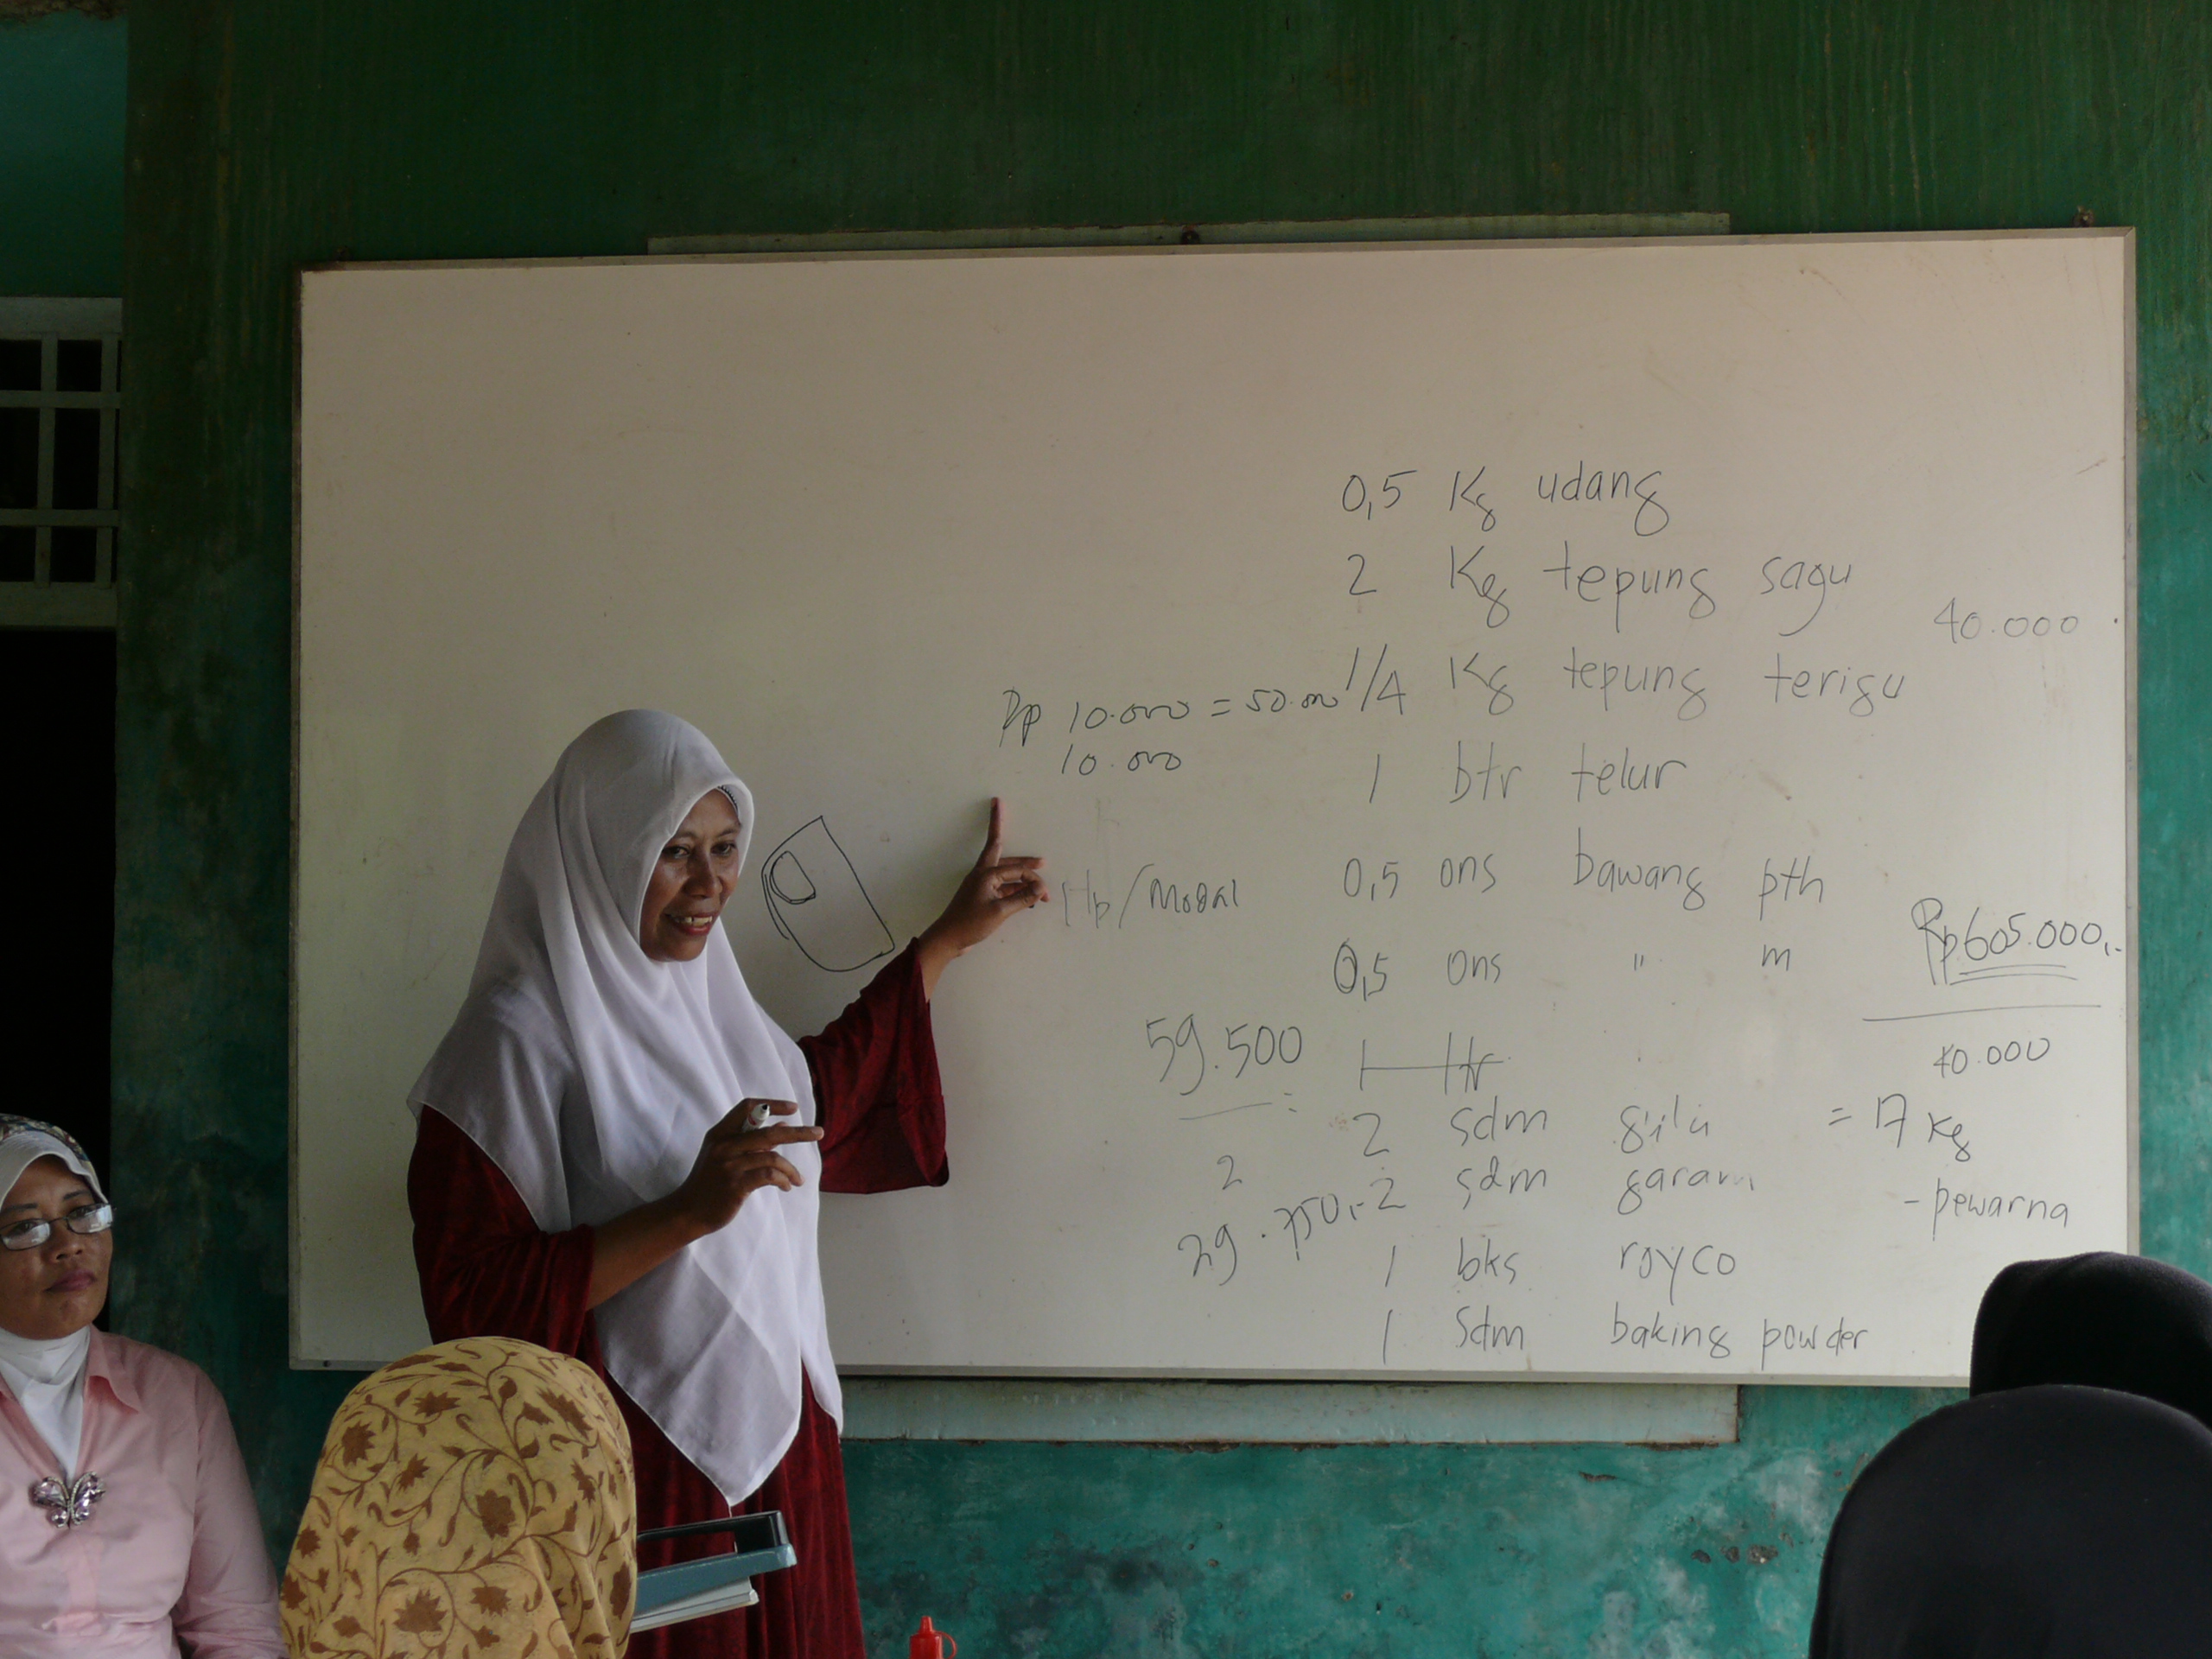 0,5 Kg udang
2 Kg tepung sagu
40.000
Rp 10.000 = 50.000
10.000
1/4 Kg tepung terigu
1 btr telur
Hp/Modal
0,5 ons bawang pth
0,5 ons " m
Rp 605.000,-
40.000
= 17 Kg
- pewarna
59.500
2
29.750,-
1 ltr
2 sdm gula
2 sdm garam
1 bks royco
1 Sdm baking powder